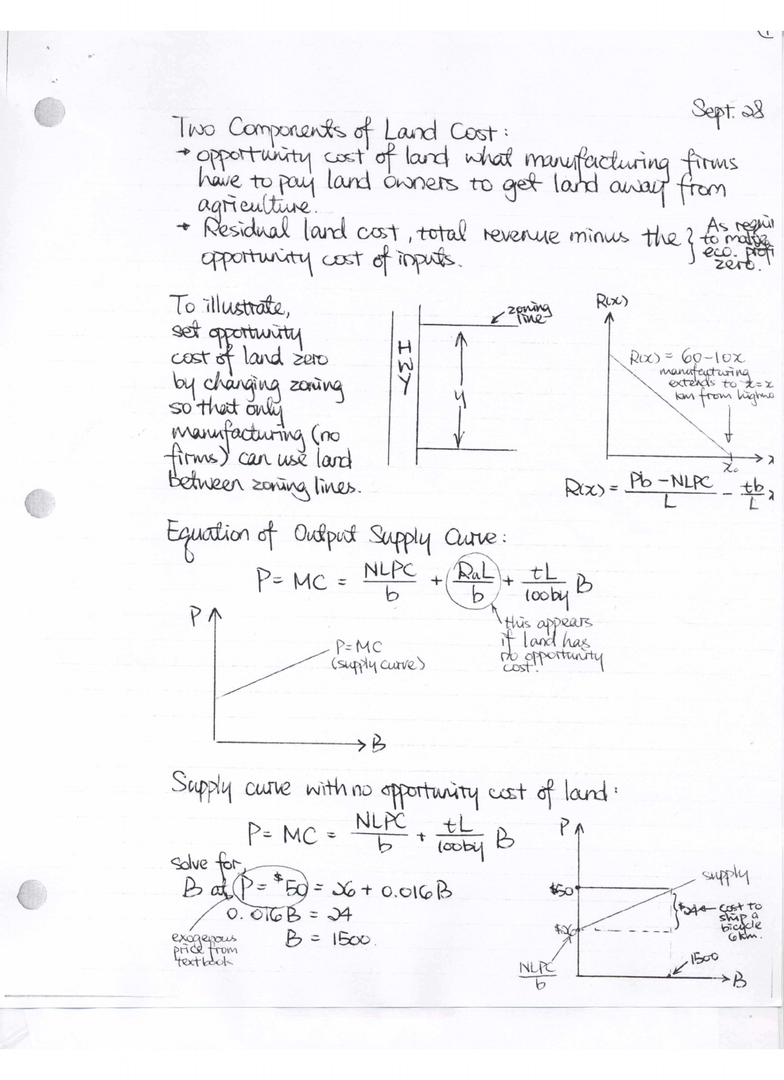 Sept. 28
Two Components of Land Cost:
→ opportunity cost of land what manufacturing firms
have to pay land owners to get land away from
agriculture.
→ Residual land cost, total revenue minus the
opportunity cost of inputs.
} As
to
eco.
zero.
To illustrate,
set opportunity
cost of land zero
by changing zoning
so that only
manufacturing (no
firms) can use land
between zoning lines.
HWY
zoning
line
y
R(x)
R(x) = 60-10x
manufacturing
extends to
km from
x₀
x
R(x) = Pb - NLPC / L - tb / L
Equation of Output Supply Curve:
P = MC = NLPC / b + RaL / b + tL / 100by B
this appears
if land has
no opportunity
cost.
P
P=MC
(supply curve)
B
Supply curve with no opportunity cost of land:
P = MC = NLPC / b + tL / 100by B
solve for
B at P = $50 = 26 + 0.016B
0.016B = 24
B = 1500.
exogenous
price from
textbook
P
$50
$26
NLPC / b
supply
$24 ← cost to
ship a
bicycle
6km.
1500
B